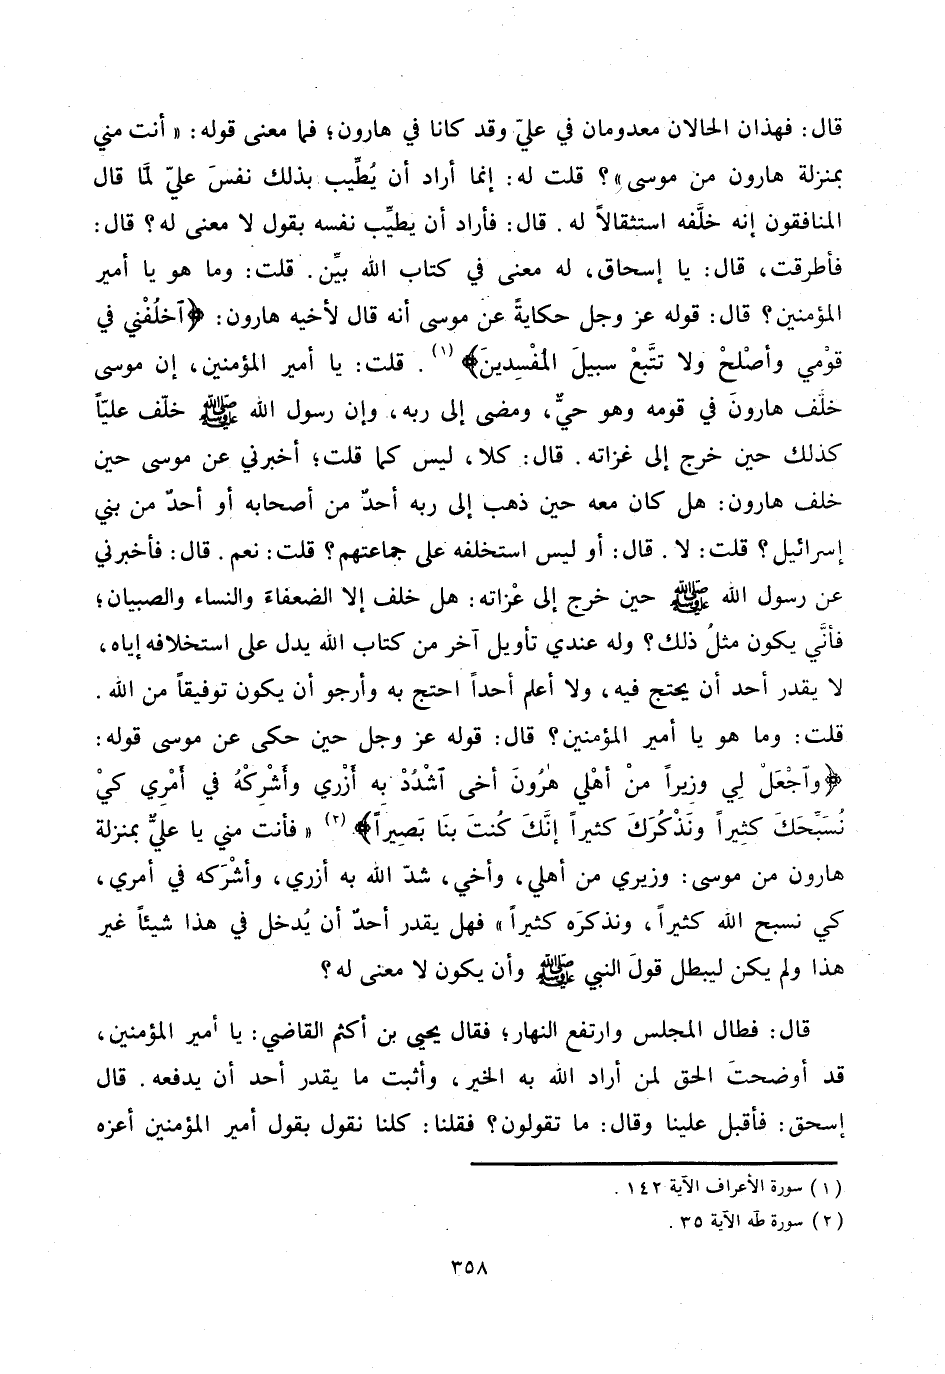 قال: فهذان الحالان معدومان في عليّ وقد كانا في هارون؛ فما معنى قوله: «أنت مني
بمنزلة هارون من موسى»؟ قلت له: إنما أراد أن يُطِّيب بذلك نفسَ عليّ لمَّا قال
المنافقون إنه خلَّفه استثقالاً له. قال: فأراد أن يطيِّب نفسه بقول لا معنى له؟ قال:
فأطرقت، قال: يا إسحاق، له معنى في كتاب الله بيِّن. قلت: وما هو يا أمير
المؤمنين؟ قال: قوله عز وجل حكايةً عن موسى أنه قال لأخيه هارون: ﴿ٱخلُفْني في
قوْمي وأصْلحْ ولا تتَّبعْ سبيلَ المُفْسِدينَ﴾ (١). قلت: يا أمير المؤمنين، إن موسى
خلَّف هارونَ في قومه وهو حيٌّ، ومضى إلى ربه، وإن رسول الله ﷺ خلّف عليّاً
كذلك حين خرج إلى غزاته. قال: كلا، ليس كما قلت؛ أخبرني عن موسى حين
خلف هارون: هل كان معه حين ذهب إلى ربه أحدٌ من أصحابه أو أحدٌ من بني
إسرائيل؟ قلت: لا. قال: أو ليس استخلفه على جماعتهم؟ قلت: نعم. قال: فأخبرني
عن رسول الله ﷺ حين خرج إلى غزاته: هل خلف إلا الضعفاءَ والنساء والصبيان؛
فأنَّي يكون مثلُ ذلك؟ وله عندي تأويل آخر من كتاب الله يدل على استخلافه إياه،
لا يقدر أحد أن يحتج فيه، ولا أعلم أحداً احتج به وأرجو أن يكون توفيقاً من الله.
قلت: وما هو يا أمير المؤمنين؟ قال: قوله عز وجل حين حكى عن موسى قوله:
﴿وٱجْعَلْ لِي وزيراً منْ أهْلي هٰرُونَ أخى ٱشْدُدْ به أزْري وأَشْرِكْهُ في أَمْري كيْ
نُسَبِّحَكَ كثِيراً ونَذْكُرَكَ كثيراً إنَّكَ كُنتَ بنَا بَصِيراً﴾ (٢) «فأنت مني يا عليُّ بمنزلة
هارون من موسى: وزيري من أهلي، وأخي، شدّ الله به أزري، وأشْرَكه في أمري،
كي نسبح الله كثيراً، ونذكرَه كثيراً» فهل يقدر أحدٌ أن يُدخل في هذا شيئاً غير
هذا ولم يكن ليبطل قولَ النبي ﷺ وأن يكون لا معنى له؟
قال: فطال المجلس وارتفع النهار؛ فقال يحيى بن أكثم القاضي: يا أمير المؤمنين،
قد أوضحتَ الحق لمن أراد الله به الخير، وأثبت ما يقدر أحد أن يدفعه. قال
إسحق: فأقبل علينا وقال: ما تقولون؟ فقلنا: كلنا نقول بقول أمير المؤمنين أعزه
(١) سورة الأعراف الآية ١٤٢.
(٢) سورة طه الآية ٣٥.
٣٥٨